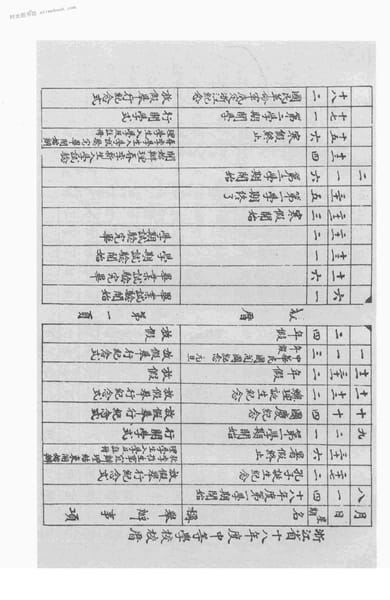 浙江省十八年度中等學校校曆
月 日 星期 名稱 舉辦事項
八 一 四 十八年度第一學期開始
二十七 二 孔子誕生紀念 放假舉行紀念式
三十一 六 暑假終止
九 一 第一學期開始 行開學式
十 十 四 國慶紀念 放假舉行紀念式
十一 十二 二 總理誕生紀念 放假舉行紀念式
十二 三十一 二 年假 放假
一 一 三 年假 中華民國 元旦 放假舉行紀念式
二 四 年假 放假
校曆 第一頁
六 一 畢業試驗開始
十一 六 畢業試驗完畢
一 學期試驗開始
二十一 二 學期試驗完畢
二十二 三 寒假開始
三十一 五 第一學期終了
二 一 六 第二學期開始
四 開始辦理春季新生入學試驗
十五 六 寒假終止
十七 一 第二學期開學 行開學式
十八 二 國民革命軍克復浙江紀念 放假舉行紀念式